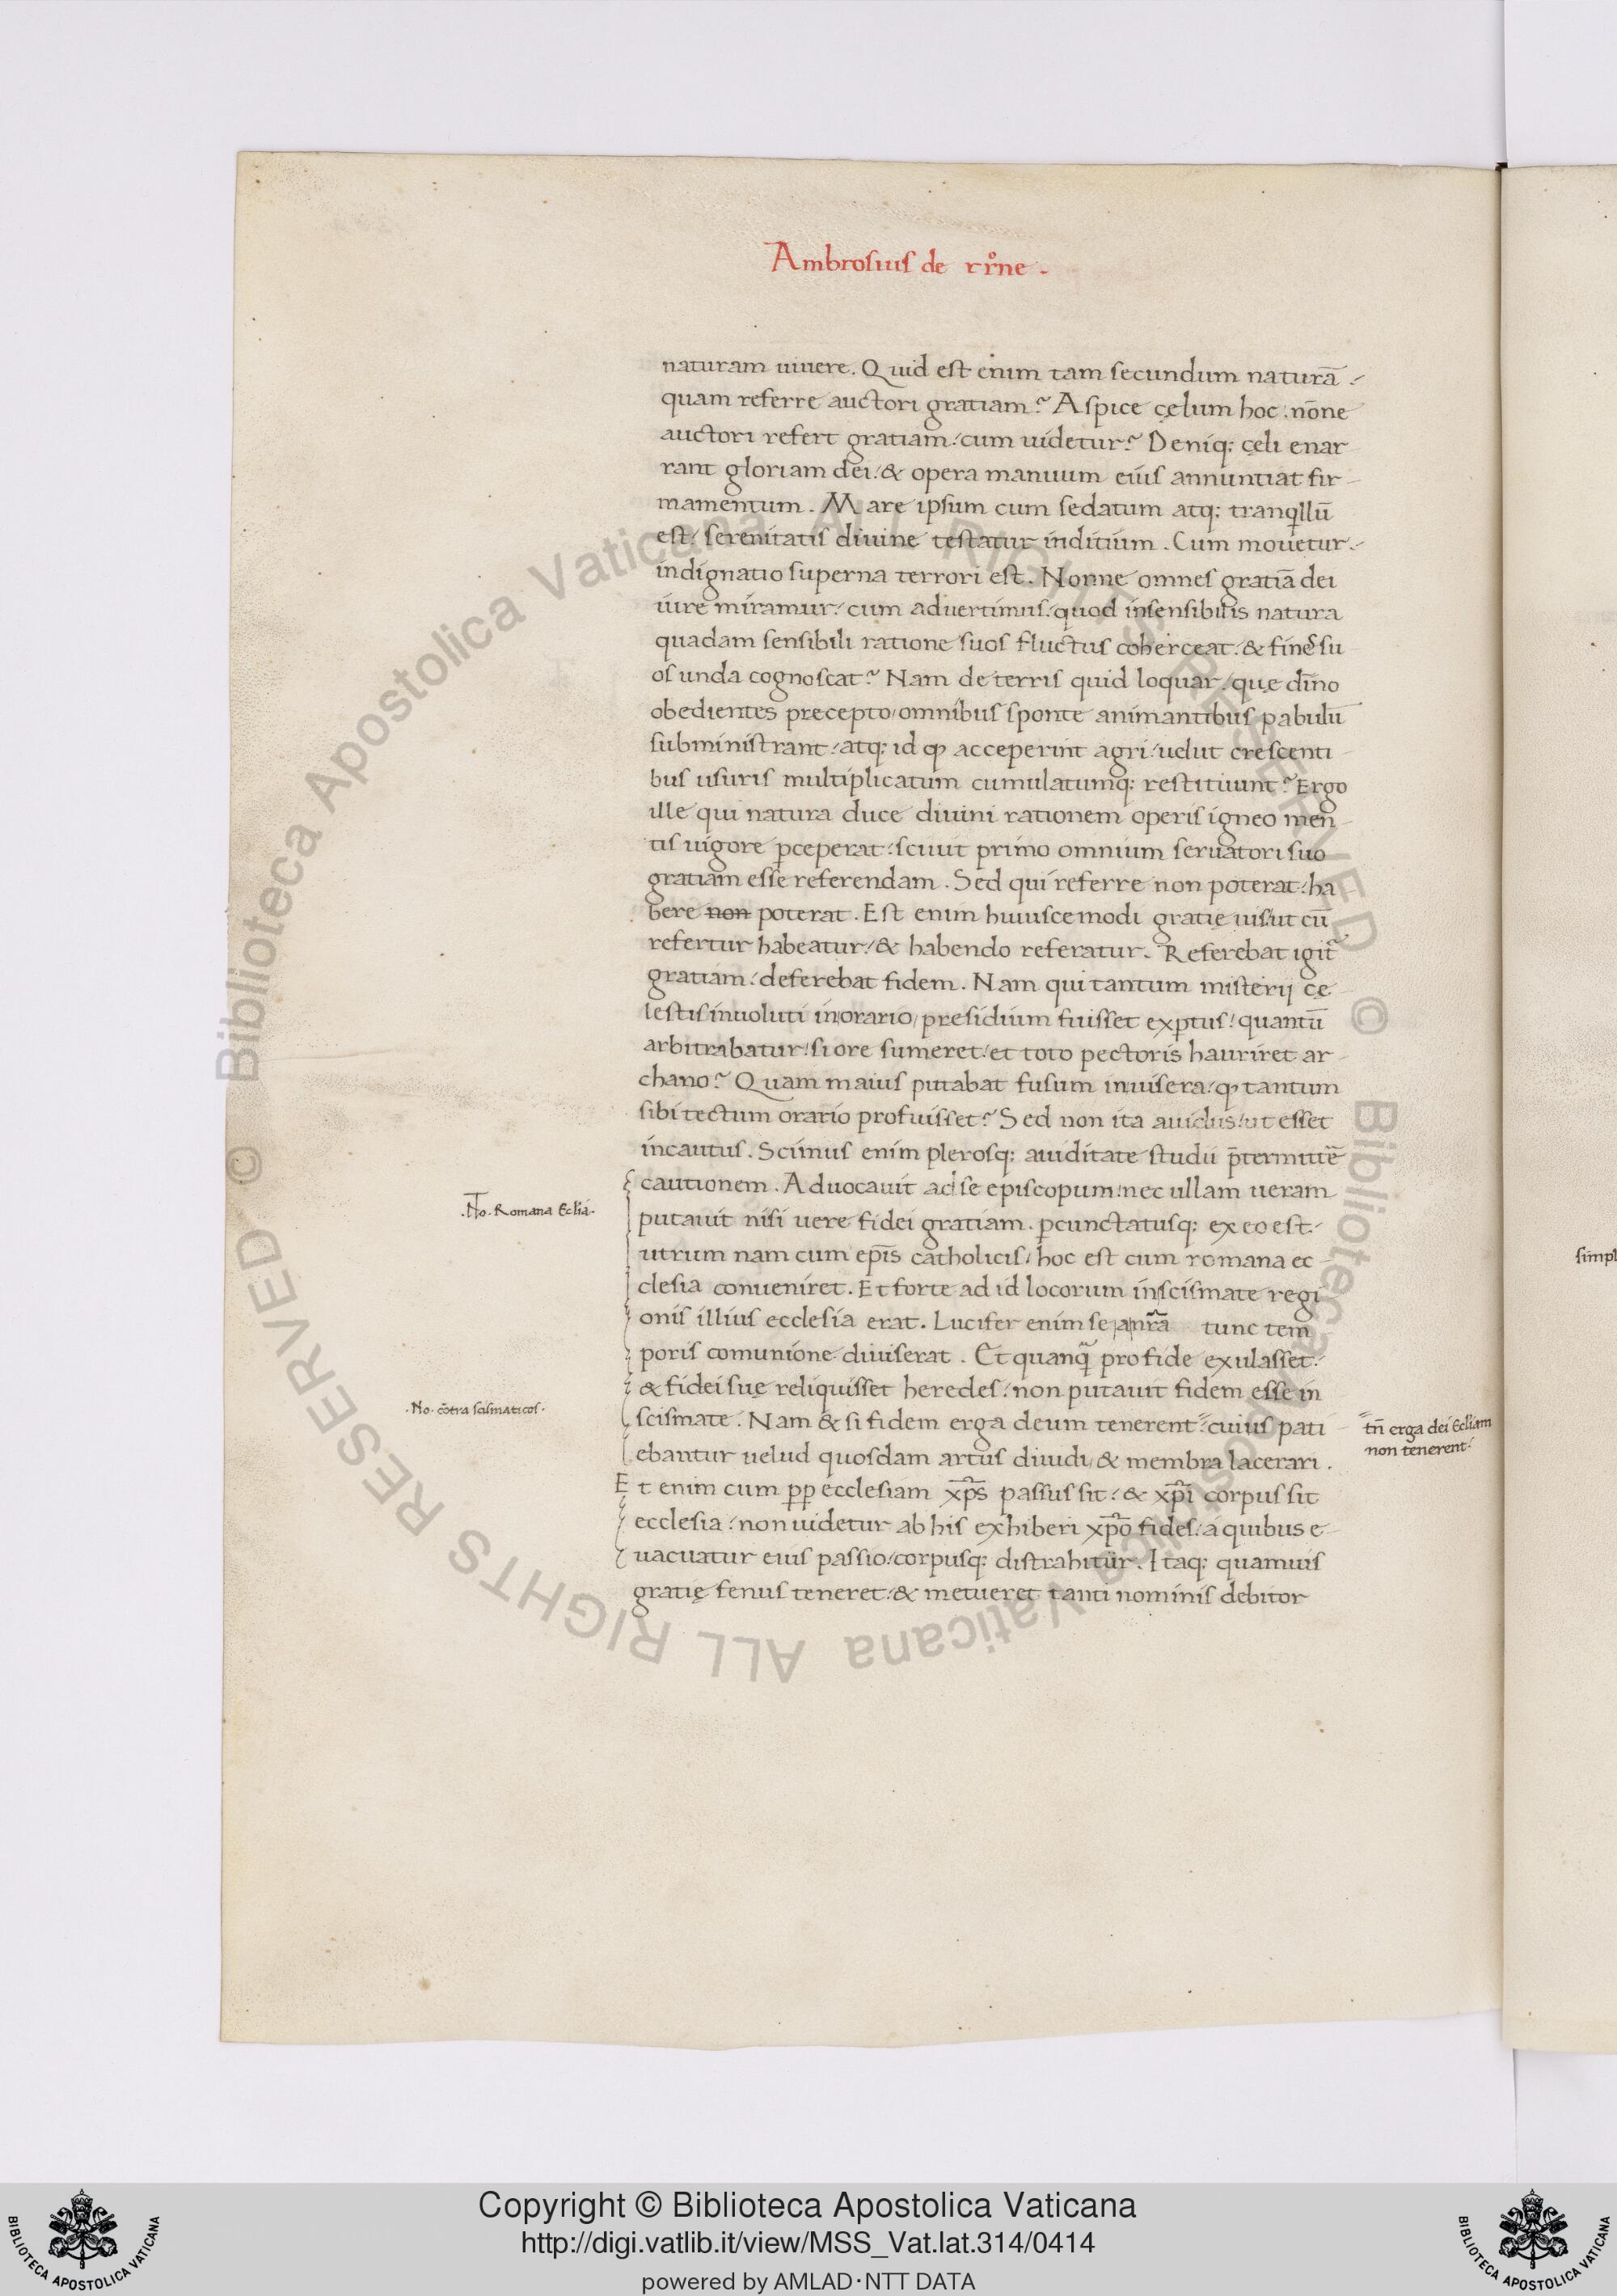 Ambrosius de rr̊ne .
naturam uiuere . Quid est enim tam secundum naturā ./
quam referre auctori gratiam ? Aspice cęlum hoc . nōne
auctori refert gratiam ./ cum uidetur ? Deniq; cęli enar
rant gloriam dei ./ & opera manuum eius annuntiat fir-
mamentum . Mare ipsum cum sedatum atq; tranqllū
est ./ serenitatis diuine testatur inditium . Cum mouetur ./
indignatio superna terrori est . Nonne omnes gratiā dei
iure miramur ./ cum aduertimus ./ quod insensibilis natura
quadam sensibili ratione suos fluctus coherceat ./ & fines su
os unda cognoscat ? Nam de terris quid loquar ./ quę dīno
obedientes precepto / omnibus sponte animantibus pabulū
subministrant ./ atq; id qp acceperint agri ./ uelut crescenti-
bus usuris multiplicatum cumulatumq; restituunt ? Ergo
ille qui natura duce diuini rationem operis igneo men-
tis uigore pceperat ./ sciuit primo omnium seruatori suo
gratiam esse referendam . Sed qui referre non poterat ./ ha
bere non poterat . Est enim huiuscemodi gratię uis / ut cū
refertur habeatur ./ & habendo referatur . Referebat igit̃
gratiam ./ deferebat fidem . Nam qui tantum misterij cę
lestis inuoluti in orario / presidium fuisset exptus ./ quantū
arbitrabatur ./ si ore sumeret ./ et toto pectoris hauriret ar-
chano ? Quam maius putabat fusum in uisera ./ qp tantum
sibi tectum orario profuisset ? Sed non ita auidus ./ ut esset
incautus . Scimus enim plerosq; auiditate studii p̄termittē
cautionem . Aduocauit ad se episcopum ./ nec ullam ueram
.No. Romana Eclia .
putauit nisi uere fidei gratiam . pcunctatusq; ex eo est ./
utrum nam cum epīs catholicis / hoc est cum romana ec-
clesia conueniret . Et forte ad id locorum in scismate regi
onis illius ecclesia erat . Lucifer enim se a nrā tunc tem
poris comunione diuiserat . Et quanq̃ pro fide exulasset ./
& fidei suę reliquisset heredes ./ non putauit fidem esse in
. No . cōtra scismaticos .
scismate . Nam & si fidem erga deum tenerent ./ cuius pati
tn̄ erga dei Ecliam
non tenerent .
ebantur uelud quosdam artus diuidi / & membra lacerari .
Et enim cum pp ecclesiam xp̄s passus sit ./ & xp̄i corpus sit
ecclesia ./ non uidetur ab his exhiberi xp̄o fides ./ a quibus e-
uacuatur eius passio ./ corpusq; distrahitur . Itaq; quamuis
gratię fenus teneret ./ & metueret tanti nominis debitor
simpl
Copyright © Biblioteca Apostolica Vaticana
http://digi.vatlib.it/view/MSS_Vat.lat.314/0414
powered by AMLAD·NTT DATA
BIBLIOTECA APOSTOLICA VATICANA
BIBLIOTECA APOSTOLICA VATICANA
© Biblioteca Apostolica Vaticana ALL RIGHTS RESERVED
© Biblioteca Apostolica Vaticana ALL RIGHTS RESERVED